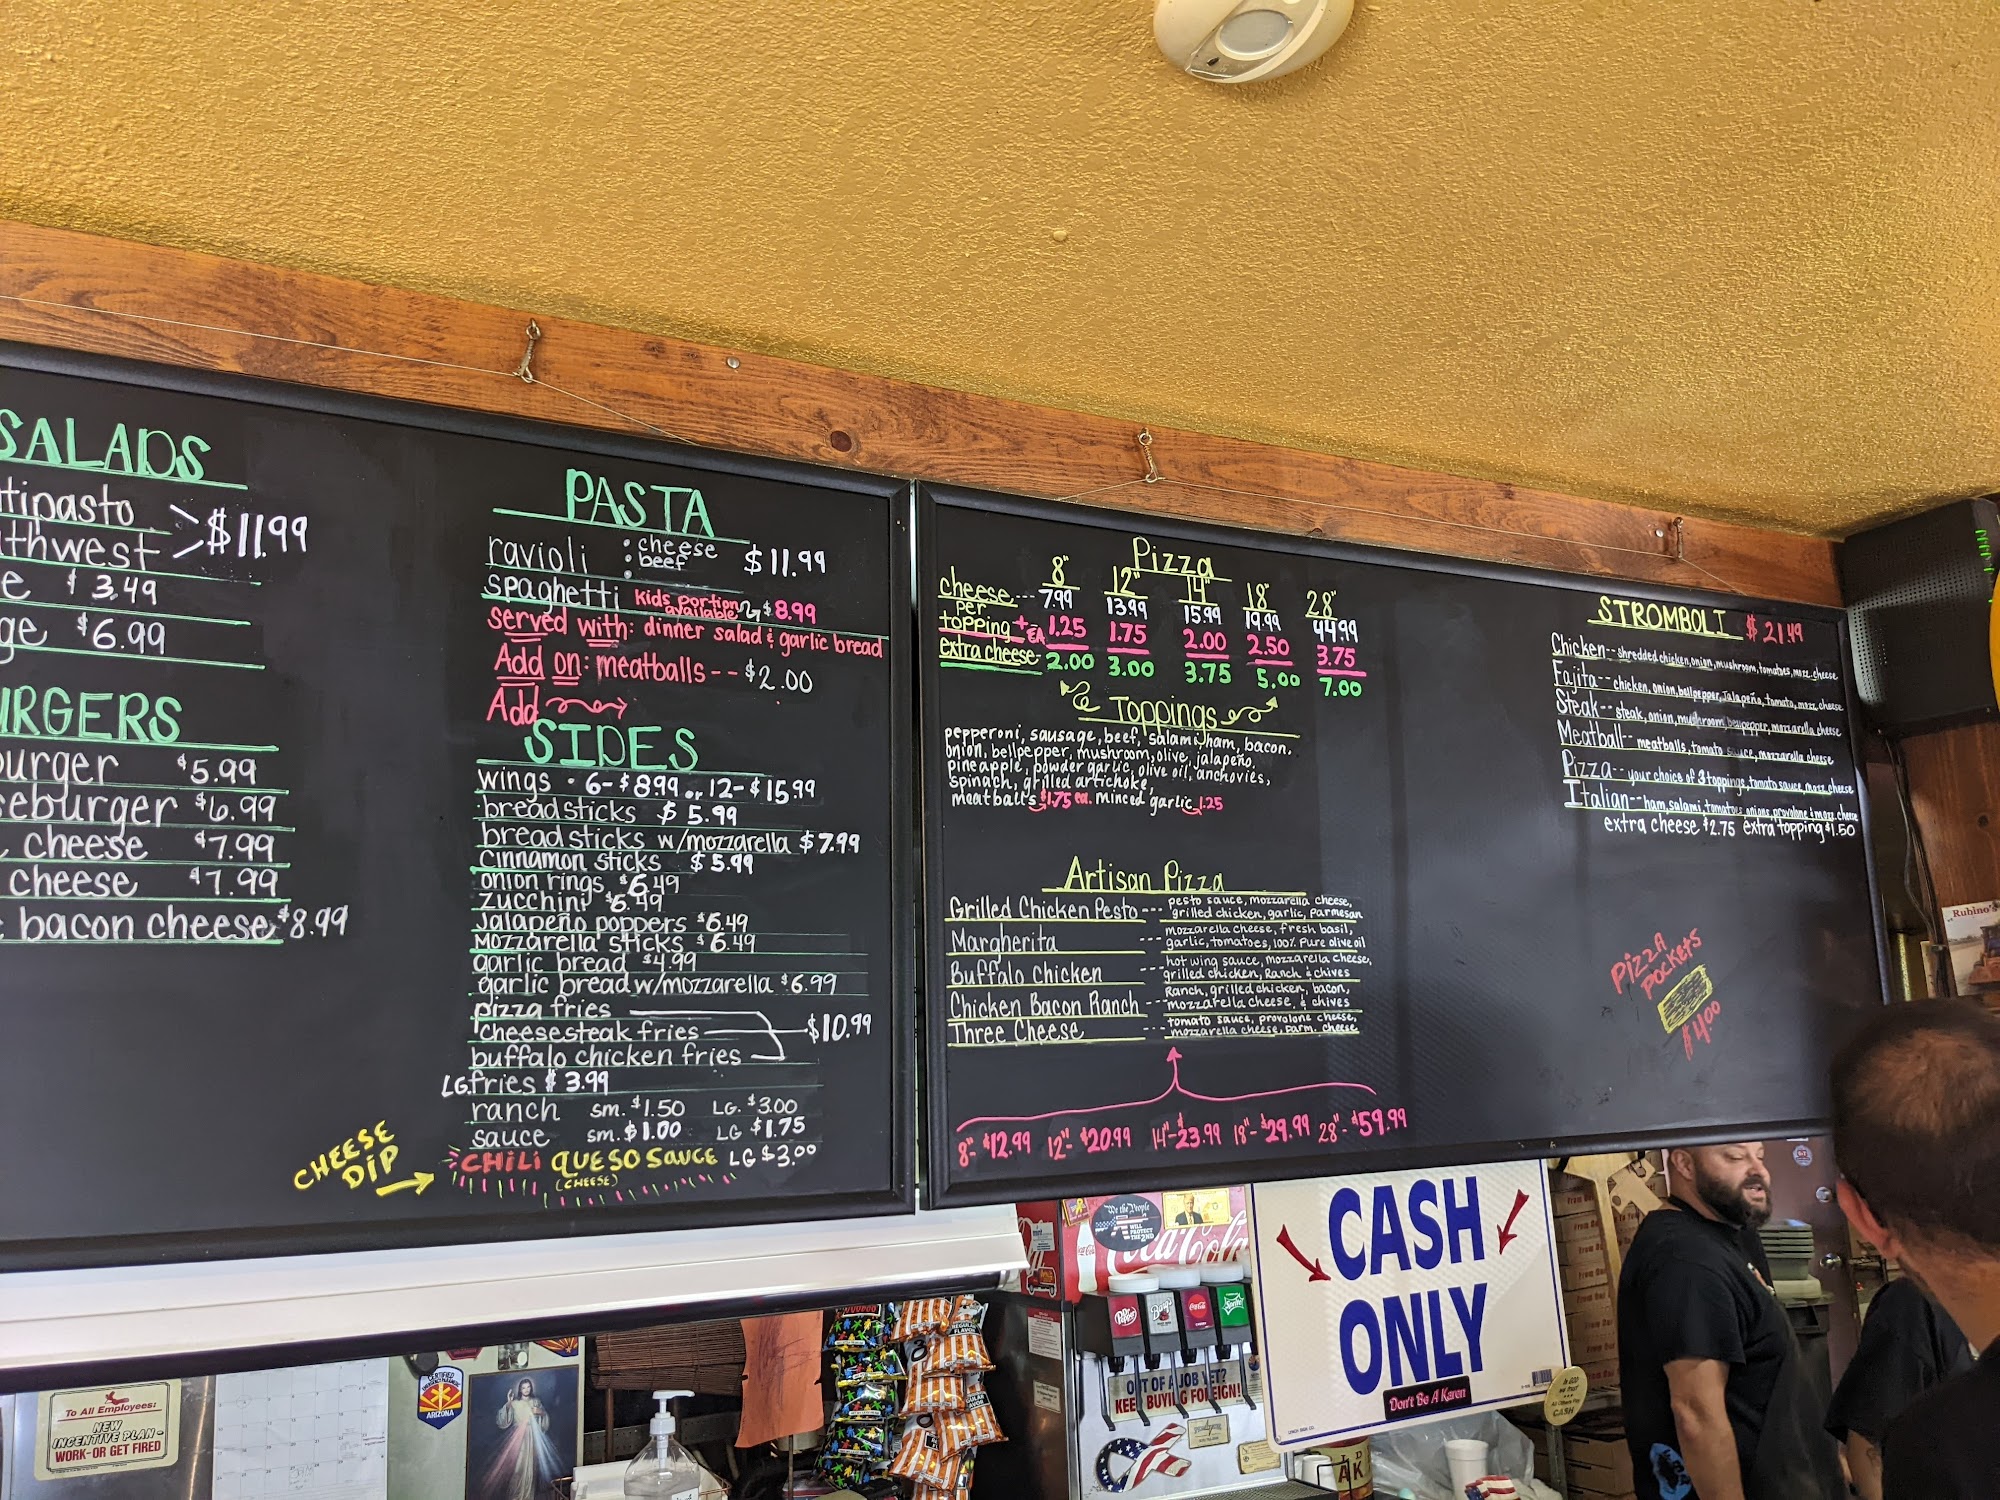 SALADS
tipasto
thwest
> $11.99
e $3.49
ge $6.99
URGERS
burger $5.99
eburger $6.99
cheese $7.99
cheese $7.99
bacon cheese $8.99
PASTA
ravioli : cheese $11.99
: beef
spaghetti Kids portion available $8.99
served with: dinner salad & garlic bread
Add on: meatballs -- $2.00
Add
SIDES
wings - 6-$8.99 or 12-$15.99
breadsticks $5.99
breadsticks w/mozzarella $7.99
cinnamon sticks $5.99
onion rings $6.49
zucchini $6.49
Jalapeño poppers $6.49
mozzarella sticks $6.49
garlic bread $4.99
garlic bread w/mozzarella $6.99
pizza fries
cheesesteak fries $10.99
buffalo chicken fries
LG. fries $3.99
ranch sm. $1.50 LG. $3.00
sauce sm. $1.00 LG $1.75
CHEESE DIP
CHiLi QUESO SAUCE LG $3.00
(CHEESE)
Pizza
8" 12" 14" 18" 28"
cheese--- 7.99 13.99 15.99 19.99 44.99
per topping + EA 1.25 1.75 2.00 2.50 3.75
extra cheese- 2.00 3.00 3.75 5.00 7.00
Toppings
pepperoni, sausage, beef, salami, ham, bacon,
onion, bellpepper, mushroom, olive, jalapeño,
pineapple, powder garlic, olive oil, anchovies,
spinach, grilled artichoke,
meatballs $1.75 ea. minced garlic 1.25
Artisan Pizza
Grilled Chicken Pesto --- pesto sauce, mozzarella cheese,
grilled chicken, garlic, parmesan
Margherita --- mozzarella cheese, fresh basil,
garlic, tomatoes, 100% pure olive oil
Buffalo Chicken --- hot wing sauce, mozzarella cheese,
grilled chicken, Ranch & chives
Chicken Bacon Ranch --- Ranch, grilled chicken, bacon,
mozzarella cheese, & chives
Three Cheese --- tomato sauce, provolone cheese,
mozzarella cheese, parm. cheese
8"- $12.99 12"- $20.99 14"- $23.99 18"- $29.99 28"- $59.99
STROMBOLI $21.49
Chicken-- shredded chicken, onion, mushroom, tomatoes, mozz. cheese
Fajita-- chicken, onion, bellpepper, Jalapeño, tomato, mozz. cheese
Steak-- steak, onion, mushroom, bellpepper, mozzarella cheese
Meatball-- meatballs, tomato sauce, mozzarella cheese
Pizza-- your choice of 3 toppings, tomato sauce, mozz. cheese
Italian-- ham, salami, tomatoes, onions, provolone & mozz. cheese
extra cheese $2.75 extra topping $1.50
PIZZA
POCKETS
$4.00
"Rubino's
We the People
WILL
PROTECT
THE 2ND
Coca-Cola
Dr Pepper
Barq's
Coca-Cola
Sprite
OUT OF A JOB YET?
KEEP BUYING FOREIGN!
CASH
ONLY
Don't Be A Karen
In GOD
we Trust
All Others Pay
CASH
To All Employees:
NEW
INCENTIVE PLAN-
WORK-OR GET FIRED
CERTIFIED
ARIZONA
REGULAR
FLAVOR